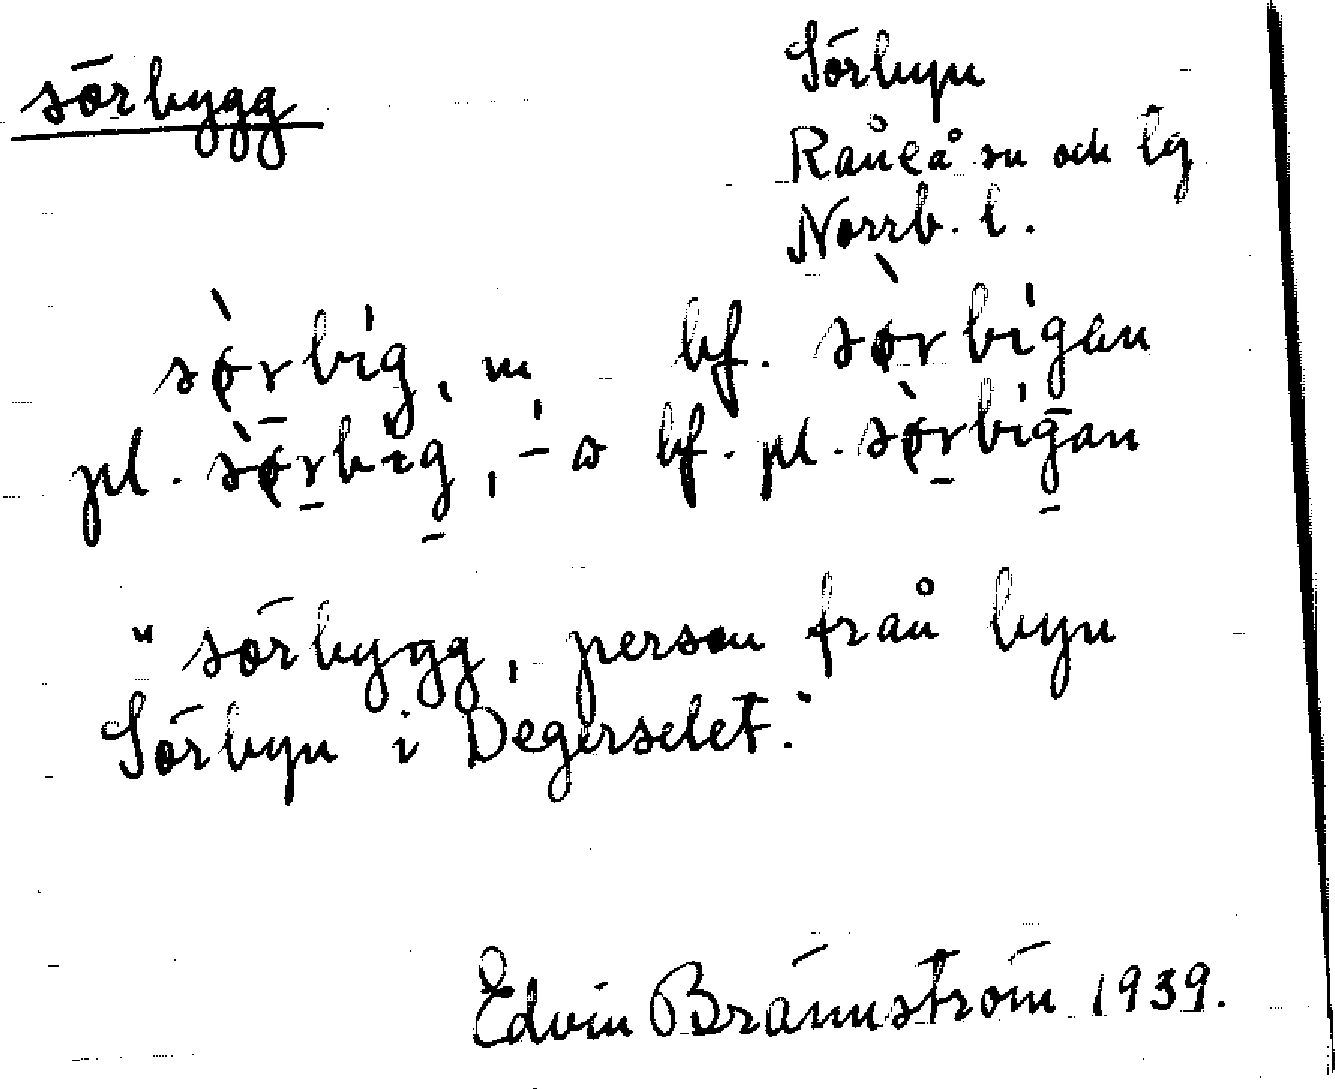 sörbygg
Sörbyn
Råneå sn och tg
Norrb. l.
sø̀rbíg, m, bf. sø̀rbígan
pl. sø̀rbig, -a bf. pl. sø̀rbigan
"sörbygg, person från byn
Sörbyn i Degerselet."
Edvin Brännström 1939.